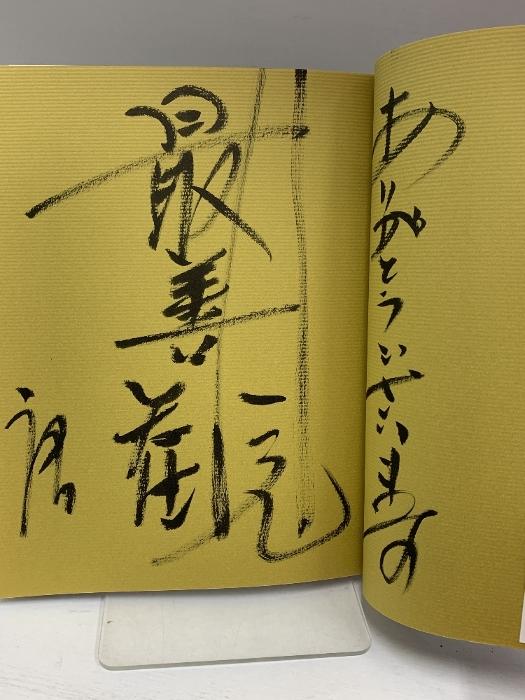 ありがとうございます
最善観